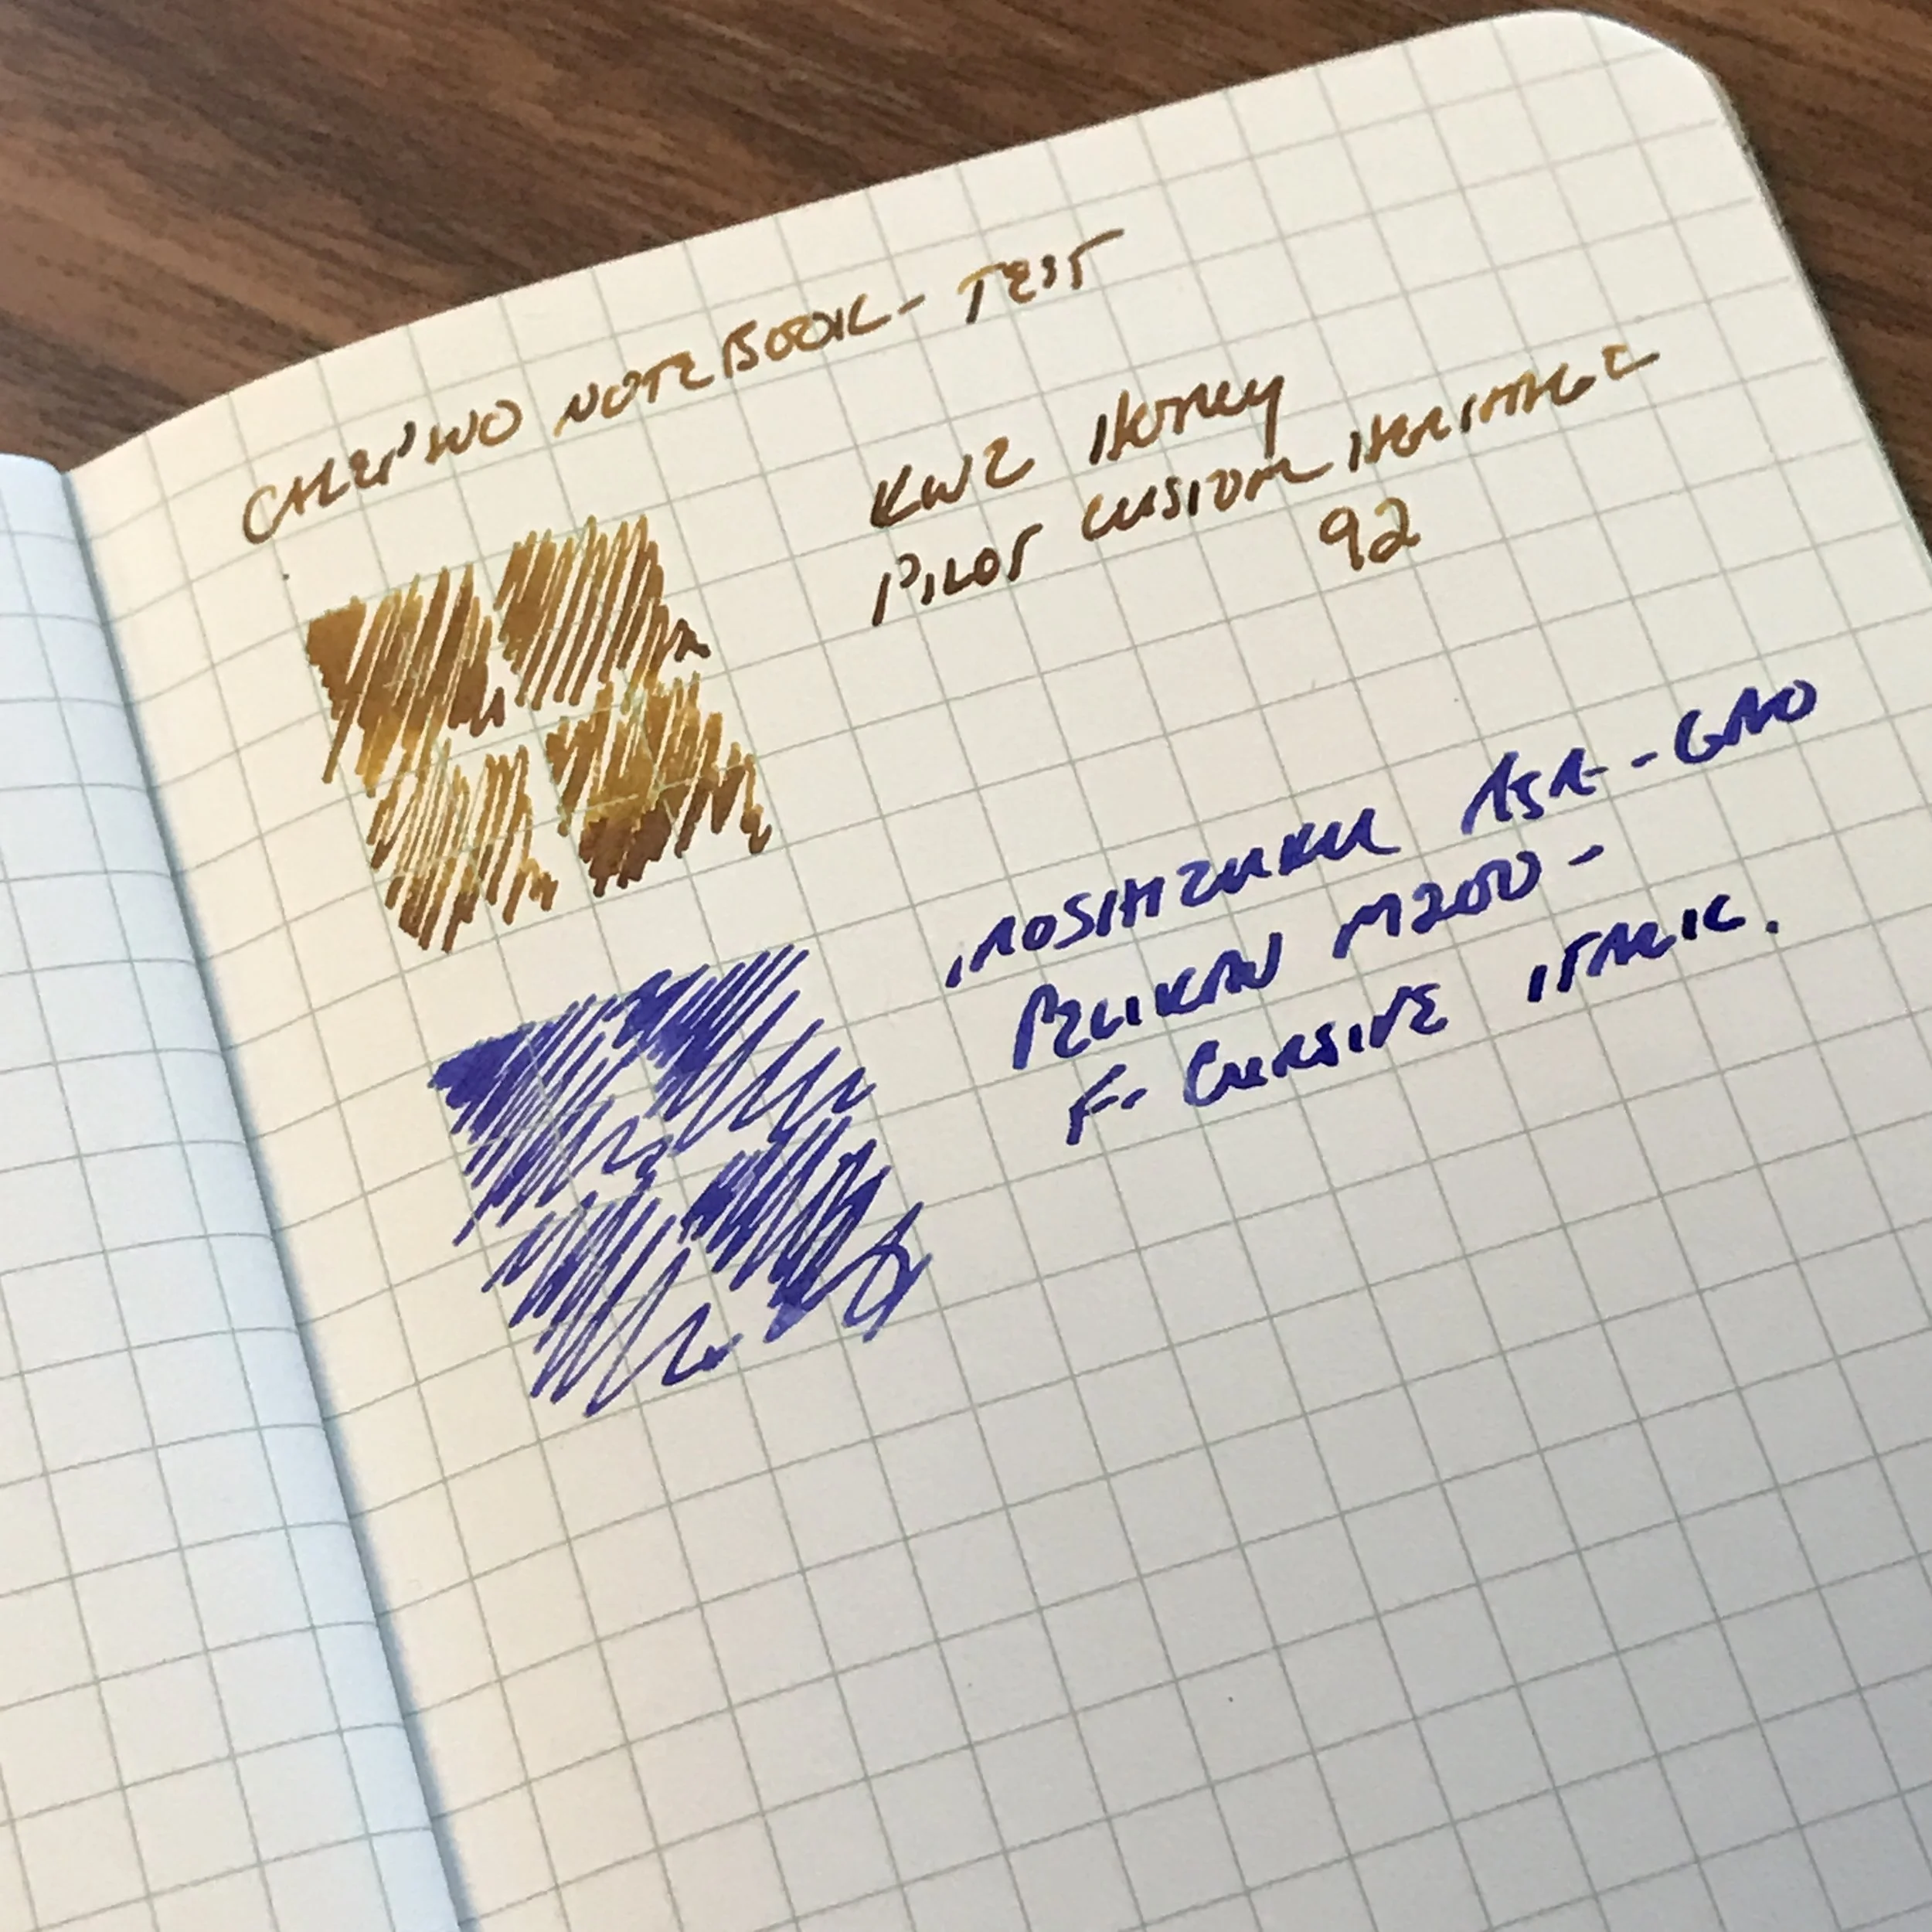 CALEPINO NOTEBOOK - TEST
KWZ Honey
PILOT CUSTOM HERITAGE
92
IROSHIZUKU ASA-GAO
PELIKAN M200 -
F- CURSIVE ITALIC.